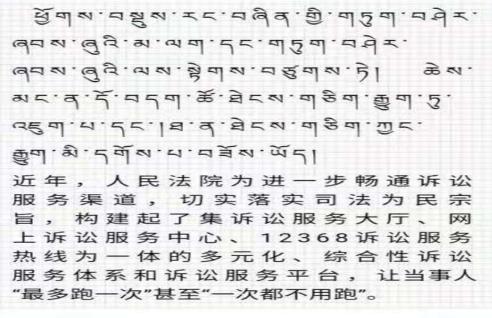 ཕྱོགས་བསྡུས་རང་བཞིན་གྱི་གཏུག་བཤེར་
ཞབས་ཞུའི་མ་ལག་དང་གཏུག་བཤེར་
ཞབས་ཞུའི་ལས་སྟེགས་བཙུགས་ཏེ། ཆེས་
མང་ན་དོ་བདག་ཚོ་ཐེངས་གཅིག་རྒྱུག་ཏུ་
འཇུག་པ་དང་།ཐ་ན་ཐེངས་གཅིག་ཀྱང་
རྒྱུག་མི་དགོས་པ་བཟོས་ཡོད།
近年，人民法院为进一步畅通诉讼
服务渠道，切实落实司法为民宗
旨，构建起了集诉讼服务大厅、网
上诉讼服务中心、12368诉讼服务
热线为一体的多元化、综合性诉讼
服务体系和诉讼服务平台，让当事人
“最多跑一次”甚至“一次都不用跑”。